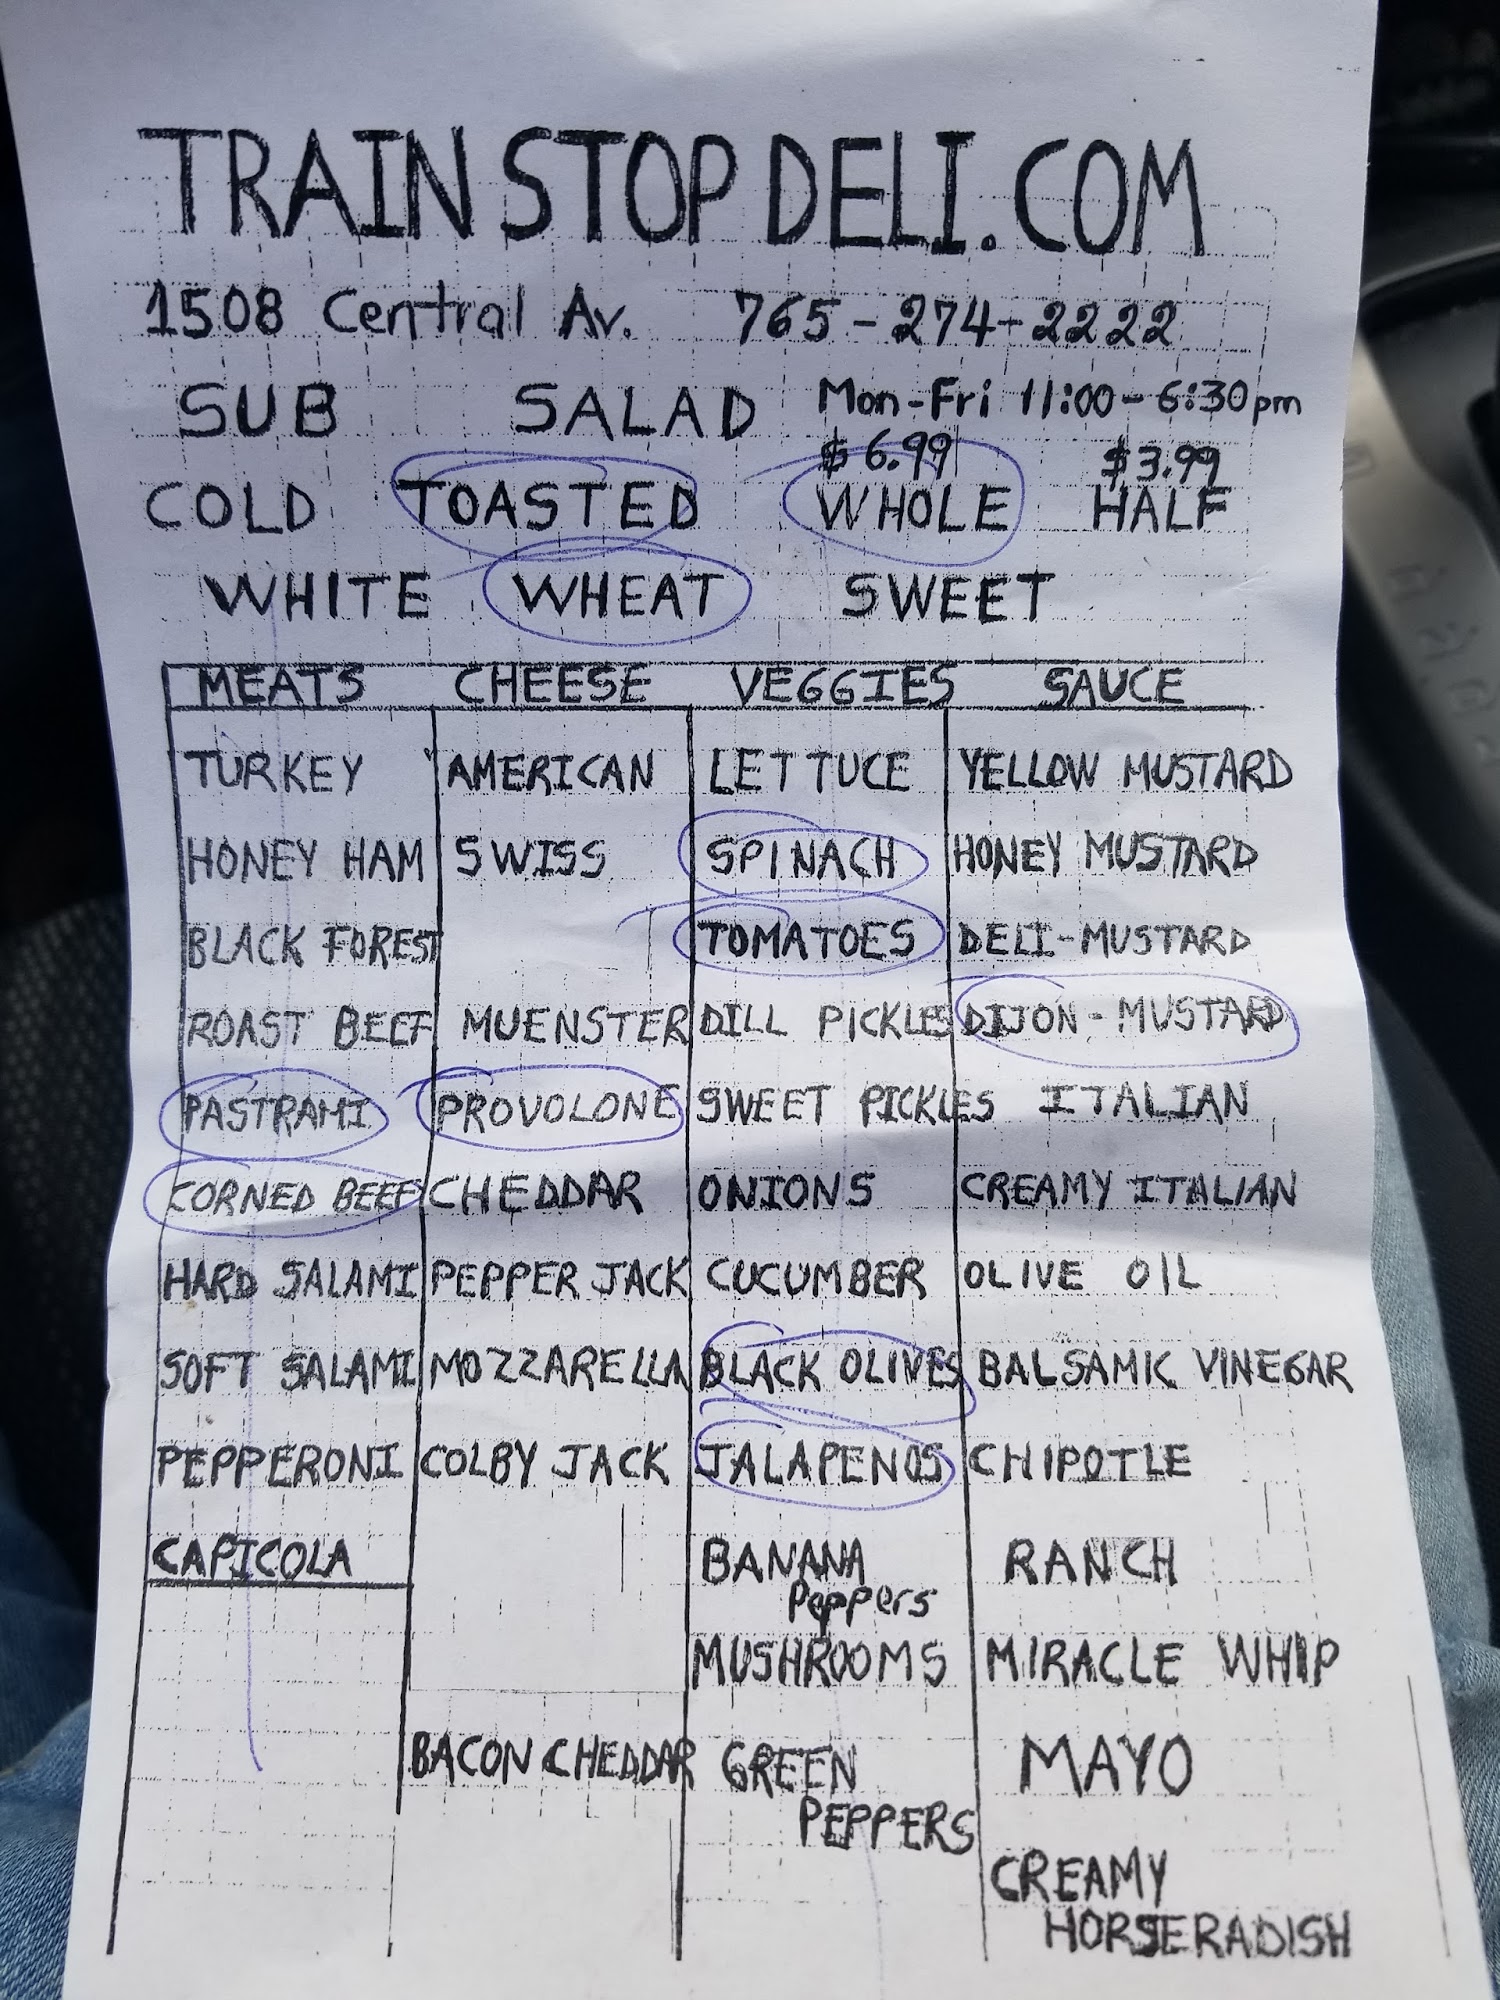 TRAIN STOP DELI.COM
1508 Central Av. 765-274-2222
SUB SALAD Mon-Fri 11:00-6:30pm
$6.99 $3.99
COLD TOASTED WHOLE HALF
WHITE WHEAT SWEET
MEATS CHEESE VEGGIES SAUCE
TURKEY AMERICAN LETTUCE YELLOW MUSTARD
HONEY HAM SWISS SPINACH HONEY MUSTARD
BLACK FOREST TOMATOES DELI-MUSTARD
ROAST BEEF MUENSTER DILL PICKLES DIJON-MUSTARD
PASTRAMI PROVOLONE SWEET PICKLES ITALIAN
CORNED BEEF CHEDDAR ONIONS CREAMY ITALIAN
HARD SALAMI PEPPER JACK CUCUMBER OLIVE OIL
SOFT SALAMI MOZZARELLA BLACK OLIVES BALSAMIC VINEGAR
PEPPERONI COLBY JACK JALAPENOS CHIPOTLE
CAPICOLA BANANA RANCH
Peppers
MUSHROOMS MIRACLE WHIP
BACON CHEDDAR GREEN MAYO
PEPPERS
CREAMY
HORSERADISH